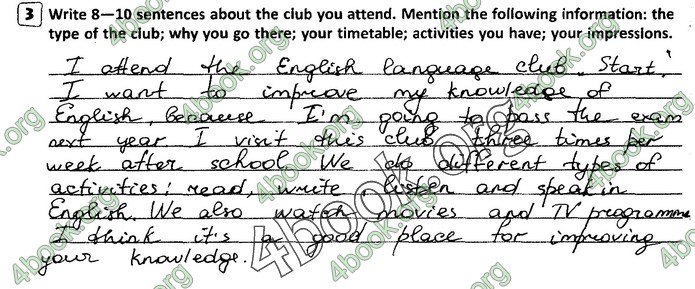 3 Write 8—10 sentences about the club you attend. Mention the following information: the
type of the club; why you go there; your timetable; activities you have; your impressions.
I attend the English language club „Start."
I want to improve my knowledge of
English, because I'm going to pass the exam
next year. I visit this club three times per
week after school. We do different types of
activities: read, write listen and speak in
English. We also watch movies and TV programme
I think it's a good place for improving
your knowledge.
4book.org
4book.org
4book.org
4book.org
4book.org
4book.org
4book.org